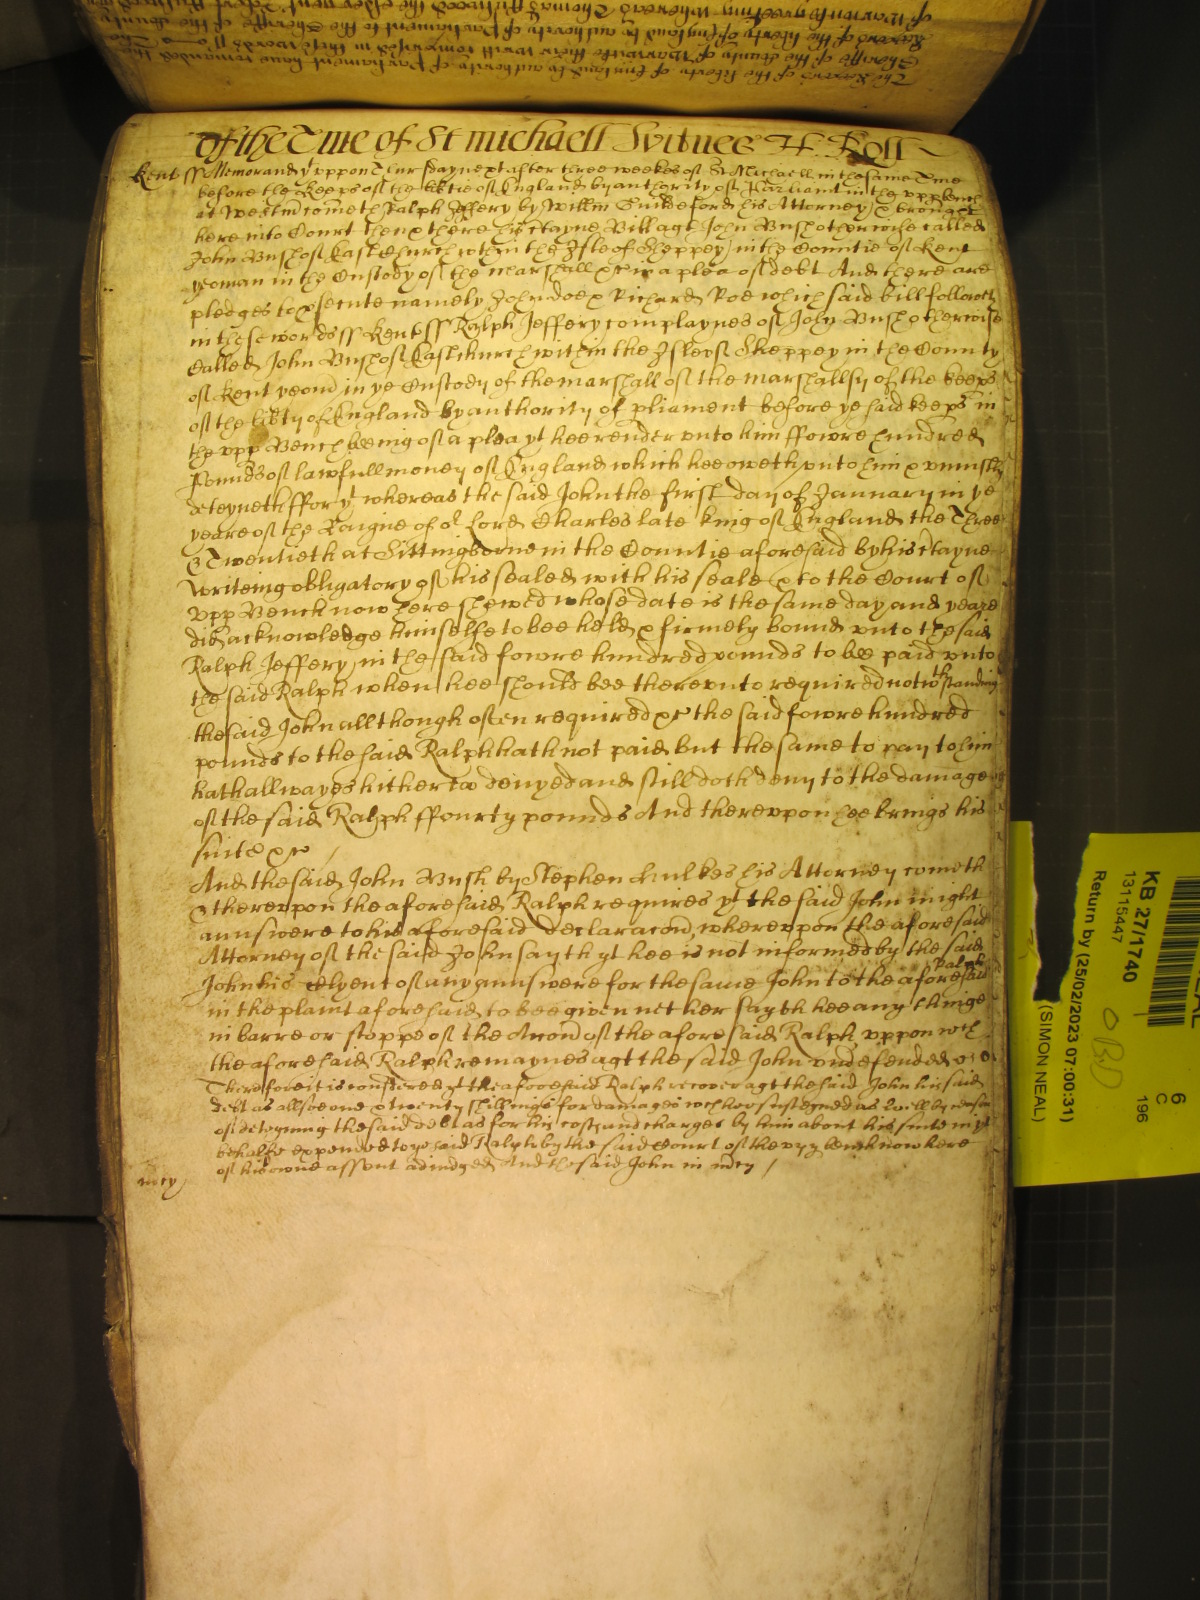 of the Tme of St michaell Witnes H. Roll
Kent ss Memorand yt uppon Thursday next after three weekes of St Michaell in the same Tme
before the Keeps of the libtie of England by authority of Parliamt in the upp bench
at Westm cometh Ralph Jeffery by Willm Guildeford his Attorney & brought
here into Court then & there his ctayne Bill agt John Bush otherwise called
John Bush of East Church wthin the Isle of Sheppey in the Countie of Kent
yeoman in the Custody of the marshall &c in a plea of debt And there are
pledges to psecute namely John doe & Richard Roe which said bill followeth
in these words ss Kent ss Ralph Jeffery complaynes of John Bush otherwise
Called John Bush of Eastchurch within the Isle of Sheppey in the County
of Kent yeom in ye Custody of the marshall of the marshallsy of the keeps
of the libty of England by authority of pliament before ye said keeps in
the upp Bench being of a plea yt hee render unto him ffowre hundred
Pounds of lawfull money of England which hee oweth unto him & uniustly
deteyneth ffor yt whereas the said John the first day of January in ye
yeare of the Raigne of or Lord Charles late king of England the Three
& Twentieth at Sittingborne in the Countie aforesaid by his ctayne
Writeing obligatory of his sealed with his seale & to the Court of
upp Bench now here shewed whose date is the same day and yeare
did acknowledge himselfe to bee held & firmely bound unto the said
Ralph Jeffery in the said fowre hundred pounds to be paid unto
the said Ralph when hee should bee thereunto required notwthstanding
the said John allthough often required &c the said fowre hundred
pounds to the said Ralph hath not paid but the same to pay to him
hath allwayes hitherto denyed and still doth deny to the damage
of the said Ralph ffourty pounds And thereupon hee brings his
suite &c
And the said John Bush by Stephen his Attorney cometh
& thereupon the aforesaid Ralph requires yt the said John might
answere to his aforesaid declaracon, whereupon the aforesaid
Attorney of the said John sayth yt hee is not informed by the said
John his Clyent of any answere for the same John to the aforesaid Ralph
in the plaint aforesaid to bee given nether sayth hee any thinge
in barre or stoppe of the Accon of the aforesaid Ralph uppon wch
the aforesaid Ralph remaynes agt the said John undefended &c
Therefore it is considered yt the aforesaid Ralph recover agt the said John his said
debt as allsoe one & twenty shillings for damages wch hee susteyned as well by reason
of deteyning the said debt as for his costs and charges by him about his suite in yt
behalfe expended to ye said Ralph by the said Court of the upp bench now here
of his owne assent adiudged And the said John in mcy
mcy
KB 27/1740
13115447
Return by (25/02/2023 07:00:31)
(SIMON NEAL)
6
C
196